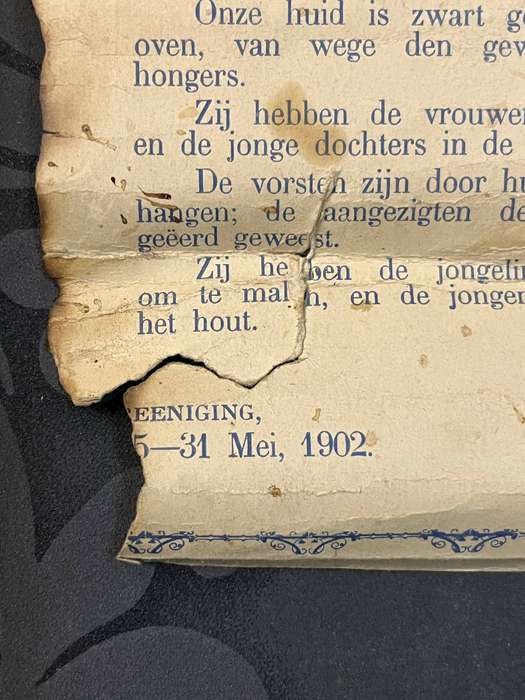 Onze huid is zwart
oven, van wege den
hongers.
Zij hebben de
en de jonge dochters in de
De vorsten zijn door
hangen; de aangezigten
geëerd geweest.
Zij hebben de
om te malen, en de
het hout.
EENIGING,
5—31 Mei, 1902.